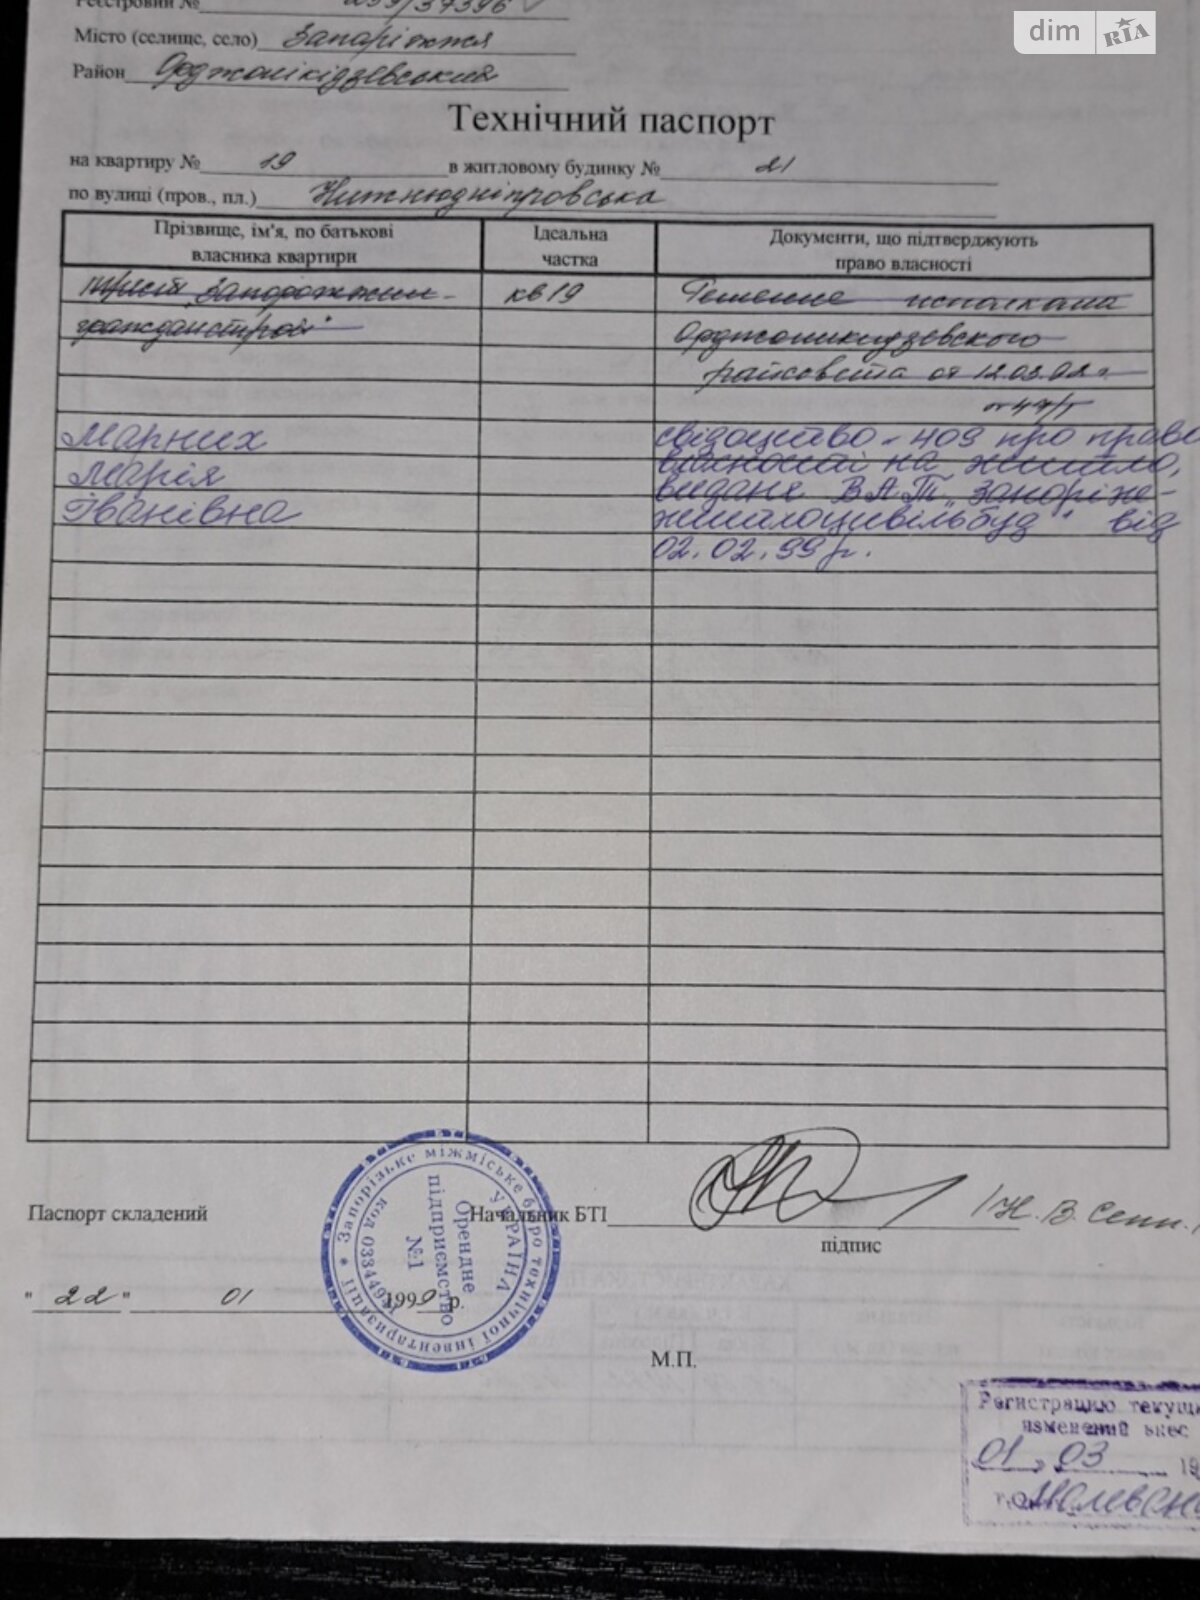 dim RIA
Реєстровий №
Місто (селище, село) Запоріжжя
Район Орджонікідзевський
Технічний паспорт
на квартиру № 19 в житловому будинку № 21
по вулиці (пров., пл.) Нижньодніпровська
Прізвище, ім'я, по батькові власника квартири
Ідеальна частка
Документи, що підтверджують право власності
трест „Запорожжил-
гражданстрой"
кв 19
Решение исполкома
Орджоникидзевского
райсовета от 12.03.92 г.
Марних
Марія
Іванівна
свідоцтво № 409 про право
власності на житло,
видане ВАТ „Запоріж-
житлоцивільбуд" від
02.02.99 р.
Паспорт складений
Начальник БТІ
підпис
"22" 01 1999 р.
М.П.
Запорізьке міжміське бюро технічної інвентаризації *
УКРАЇНА
Орендне
підприємство
№1
код
Регистрацию текущи
изменений внес
01 03 19